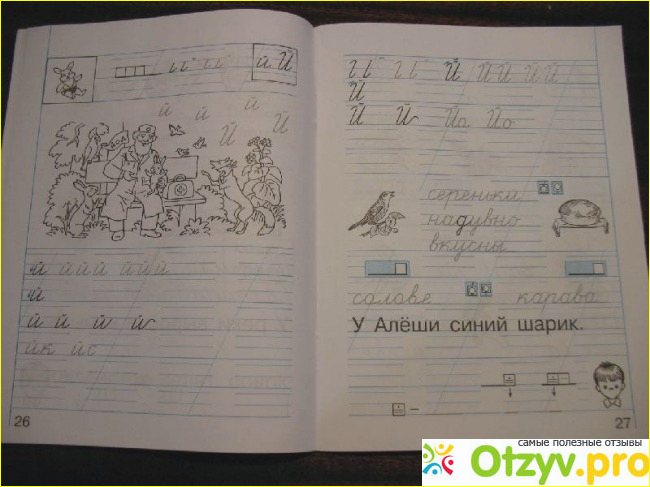 й Й
й й й
Й Й
й й й й й й й
й
й й й й
йк йс
26
Й Й Й Й Й
Й
Й Й Йа Йо
сереньки
надувно
вкусны
солове карава
У Алёши синий шарик.
27
самые полезные отзывы
Otzyv.pro